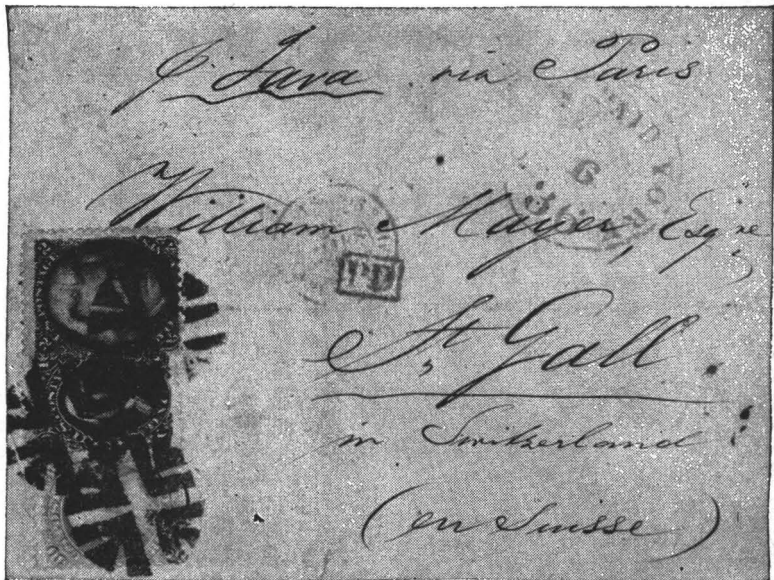 p. Java via Paris
William Mayer, Esqre
St Gall.
in Switzerland
(en Suisse)
PD